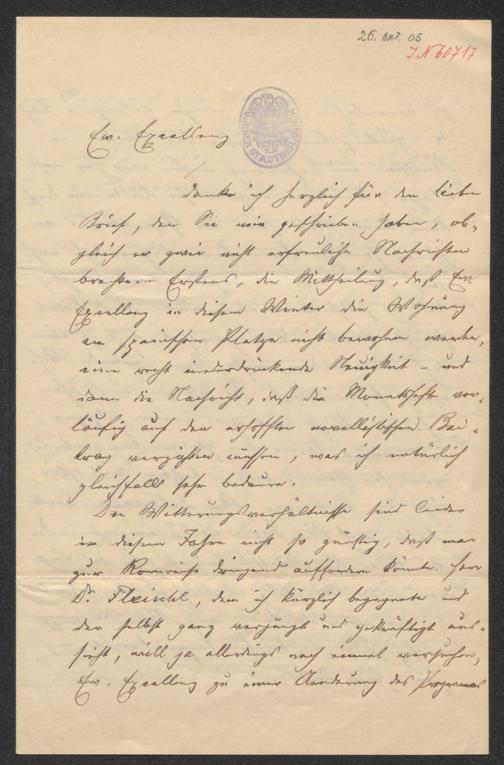 26. Okt. 05
I.N. 60717
WIENER STADTBIBLIOTHEK
Ew. Excellenz
danke ich herzlich für den lieben
Brief, den Sie mir geschrieben haben, ob-
gleich er zwei nicht erfreuliche Nachrichten
brachte. Erstens, die Mittheilung, daß Ew.
Excellenz in diesem Winter die Wohnung
am spanischen Platze nicht bewohnen werden,
eine recht niederdrückende Neuigkeit – und
dann die Nachricht, daß die Monatshefte vor-
läufig auf den erhofften novellistischen Bei-
trag verzichten müssen, was ich natürlich
gleichfalls sehr bedaure.
Die Witterungsverhältnisse sind leider
in diesem Jahre nicht so günstig, daß man
zur Romreise dringend auffordern könnte. Herr
Dr. Fleischl, dem ich kürzlich begegnete und
der selbst ganz verjüngt und gekräftigt aus-
sieht, will ja allerdings noch einmal versuchen,
Ew. Excellenz zu einer Aenderung des Programms